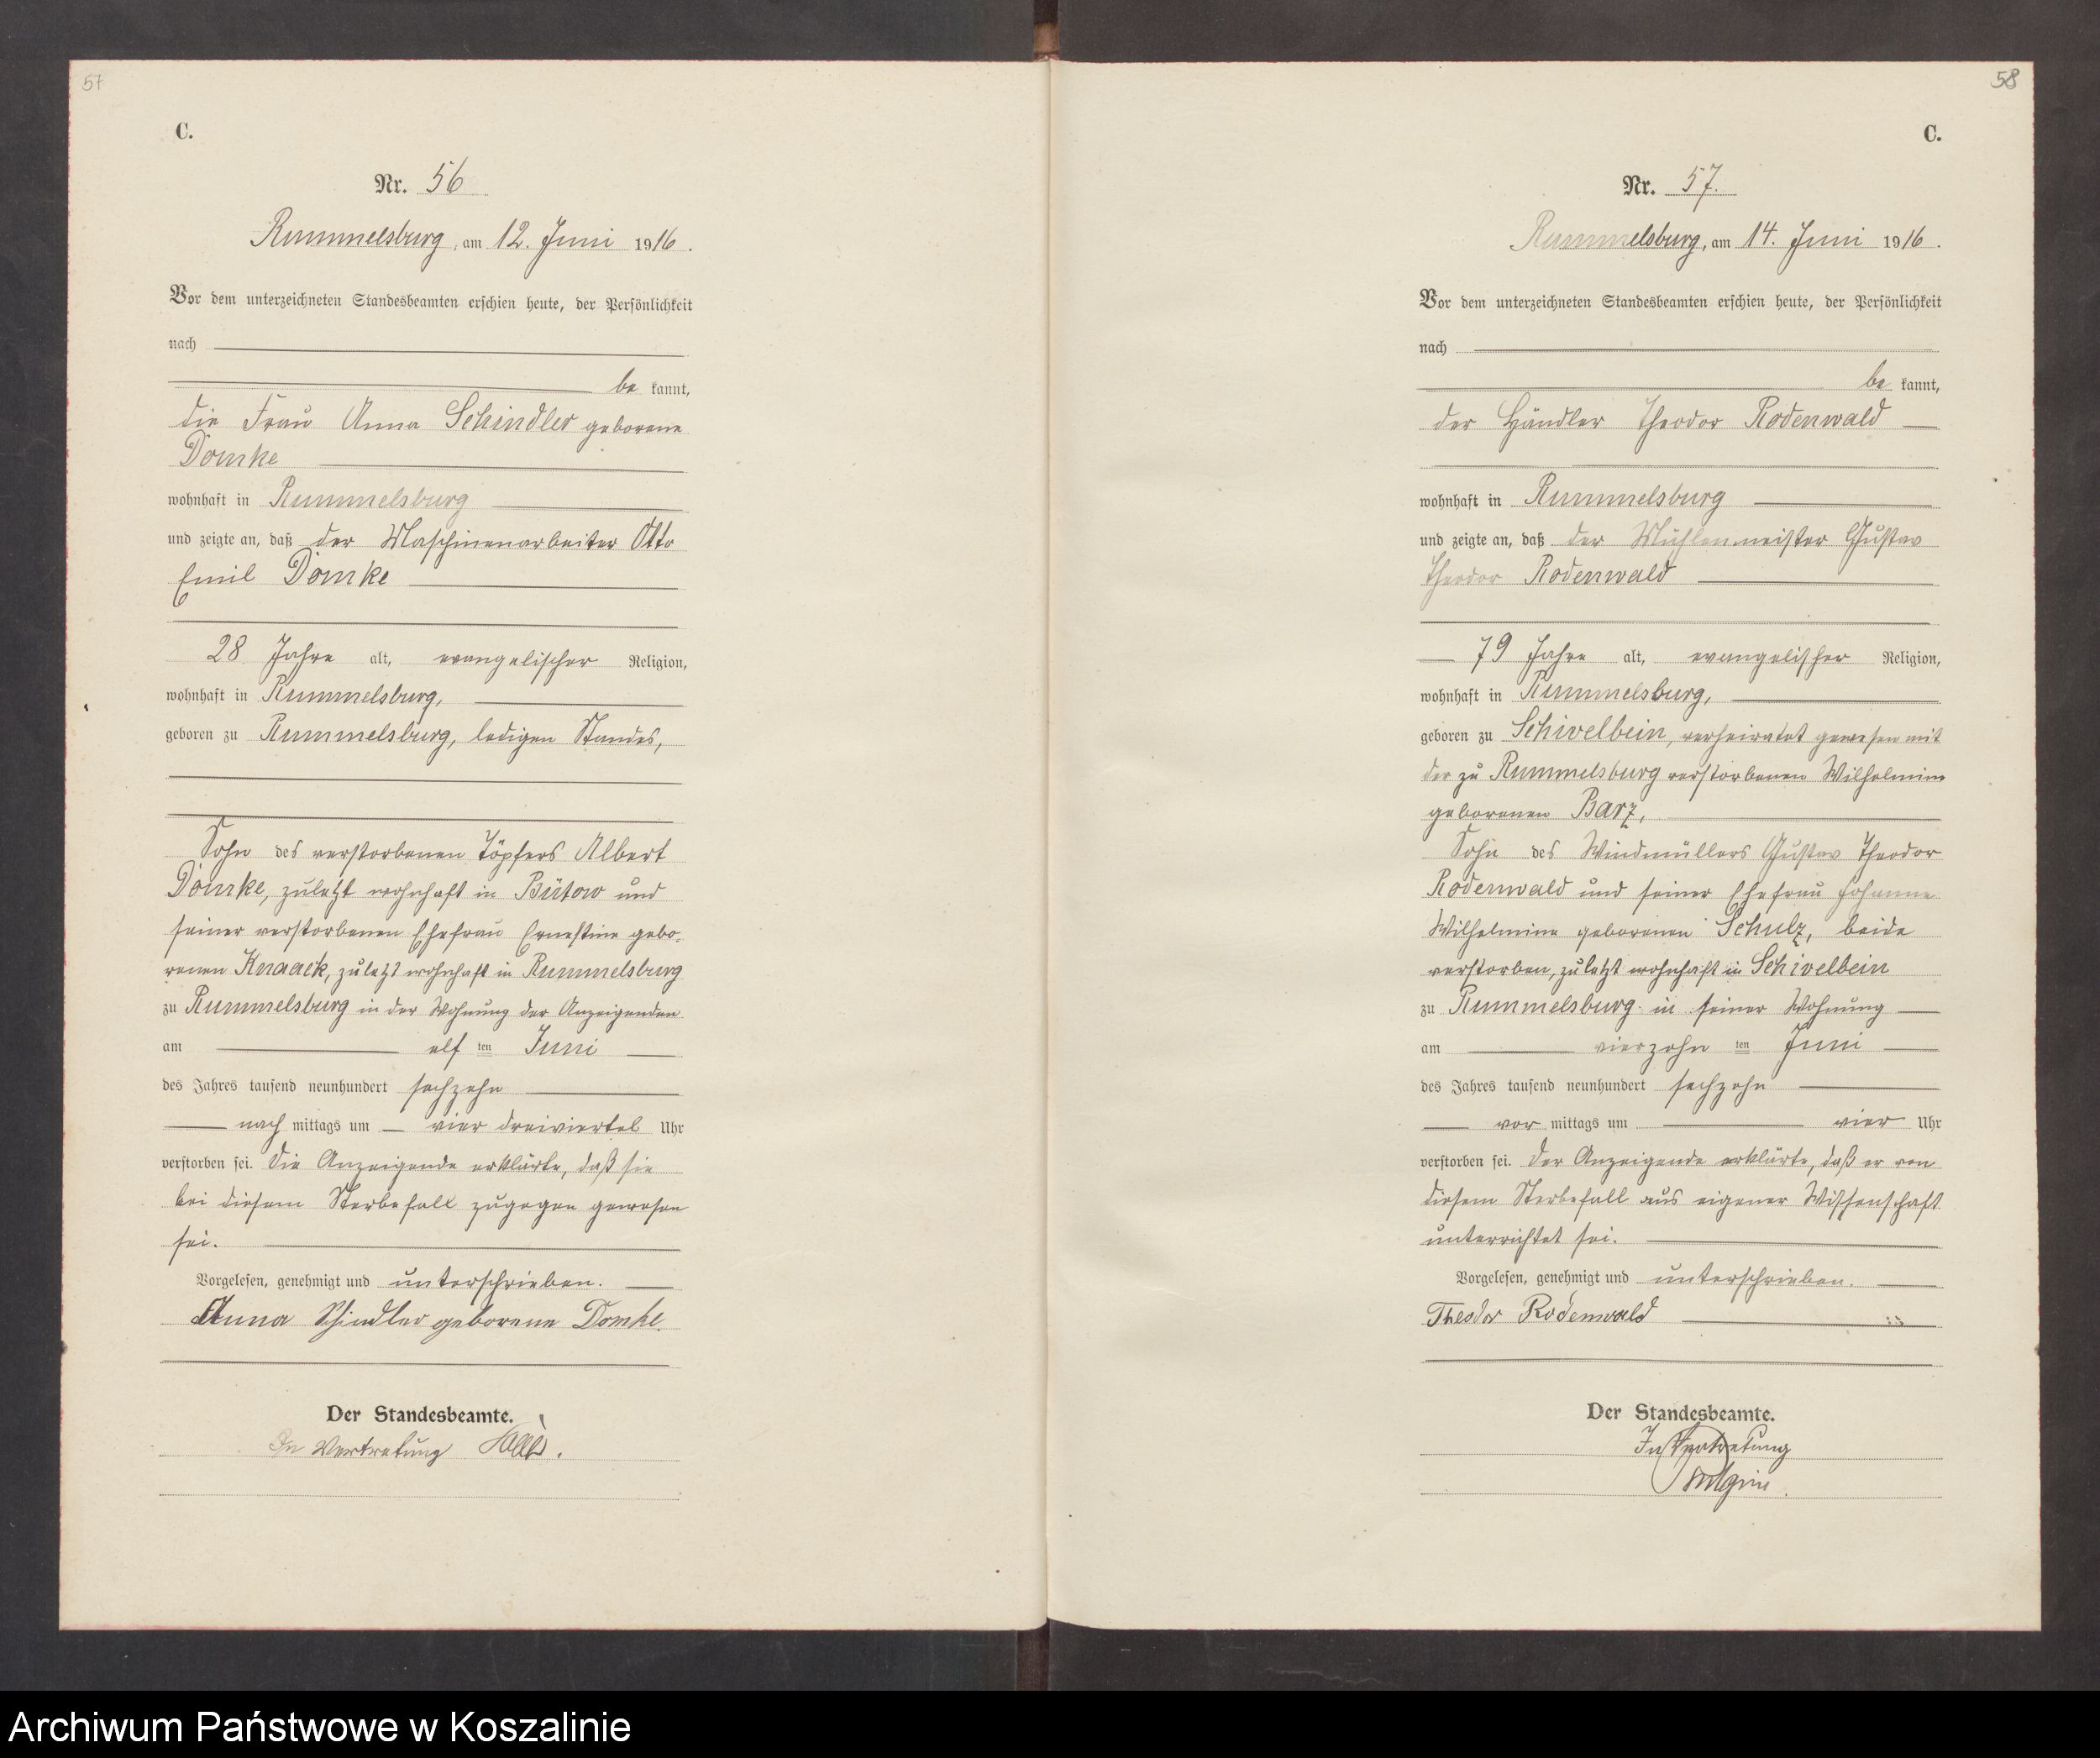 57
C.
Nr. 56
Rummelsburg, am 12. Juni 1916.
Vor dem unterzeichneten Standesbeamten erschien heute, der Persönlichkeit
nach
be kannt,
die Frau Anna Schindler geborene
Domke
wohnhaft in Rummelsburg
und zeigte an, daß der Maschinenarbeiter Otto
Emil Domke
28 Jahre alt, evangelischer Religion,
wohnhaft in Rummelsburg,
geboren zu Rummelsburg, ledigen Standes,
Sohn des verstorbenen Töpfers Albert
Domke, zuletzt wohnhaft in Bütow und
seiner verstorbenen Ehefrau Ernestine gebo-
renen Knaack, zuletzt wohnhaft in Rummelsburg
zu Rummelsburg in der Wohnung der Anzeigenden
am elf ten Juni
des Jahres tausend neunhundert sechzehn
nach mittags um vier dreiviertel Uhr
verstorben sei. Die Anzeigende erklärte, daß sie
bei diesem Sterbefall zugegen gewesen
sei.
Vorgelesen, genehmigt und unterschrieben.
Anna Schindler geborene Domke.
Der Standesbeamte.
In Vertretung
58
C.
Nr. 57.
Rummelsburg, am 14. Juni 1916.
Vor dem unterzeichneten Standesbeamten erschien heute, der Persönlichkeit
nach
be kannt,
der Händler Theodor Rodenwald
wohnhaft in Rummelsburg
und zeigte an, daß der Mühlenmeister Gustav
Theodor Rodenwald
79 Jahre alt, evangelischer Religion,
wohnhaft in Rummelsburg,
geboren zu Schivelbein, verheiratet gewesen mit
der zu Rummelsburg verstorbenen Wilhelmine
geborenen Barz,
Sohn des Windmüllers Gustav Theodor
Rodenwald und seiner Ehefrau Johanne
Wilhelmine geborenen Schulz, beide
verstorben, zuletzt wohnhaft in Schivelbein
zu Rummelsburg in seiner Wohnung
am vierzehn ten Juni
des Jahres tausend neunhundert sechzehn
vor mittags um vier Uhr
verstorben sei. Der Anzeigende erklärte, daß er von
diesem Sterbefall aus eigener Wissenschaft
unterrichtet sei.
Vorgelesen, genehmigt und unterschrieben.
Theodor Rodenwald
Der Standesbeamte.
In Vertretung
Archiwum Państwowe w Koszalinie